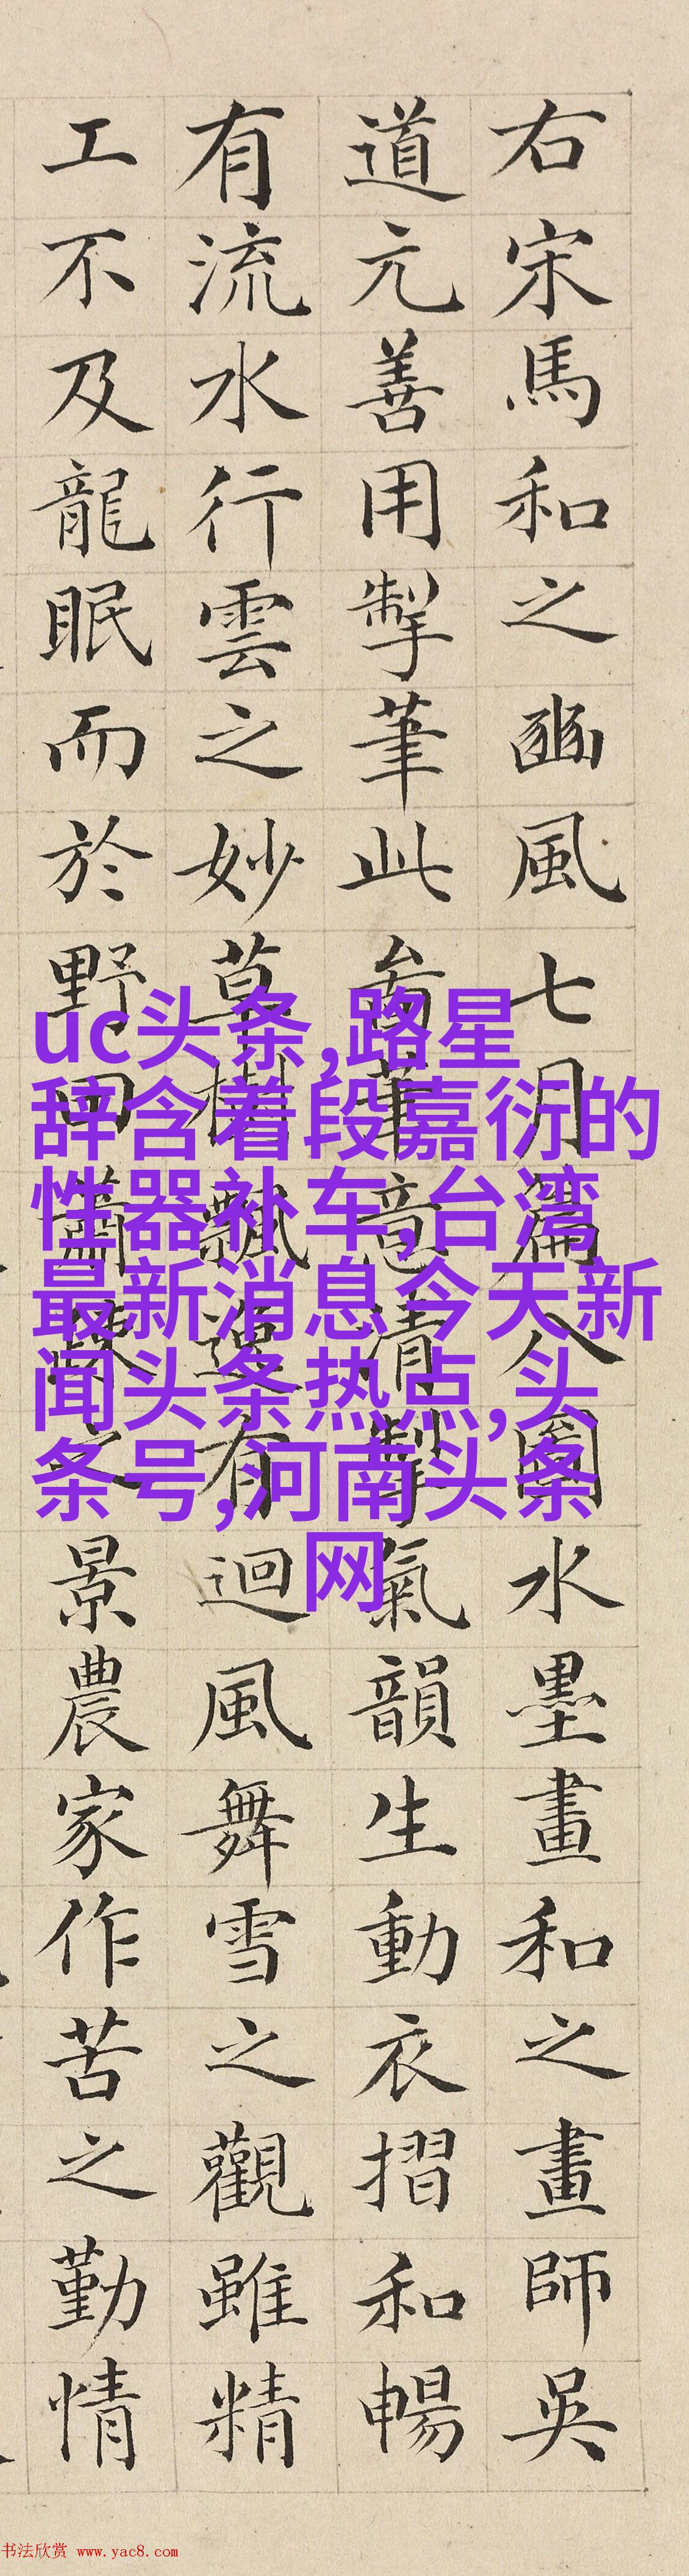 右宋馬和之豳風七月篇八圖水墨畫和之畫師吳
道元善用掣筆此畵筆意清製氣韻生動衣摺和暢
有流水行雲之妙草樹飄遝有迴風舞雪之觀雖精
工不及龍眠而於野田蕭疎之景農家作苦之勤情
uc头条,路星
辞含着段嘉衍的
性器补车,台湾
最新消息今天新
闻头条热点,头
条号,河南头条
网
书法欣赏 www.yac8.com